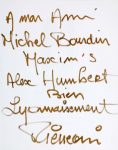 A mon Ami
Michel Bourdin
Maxim's
Alex Humbert
Bien
Lyonnaisement